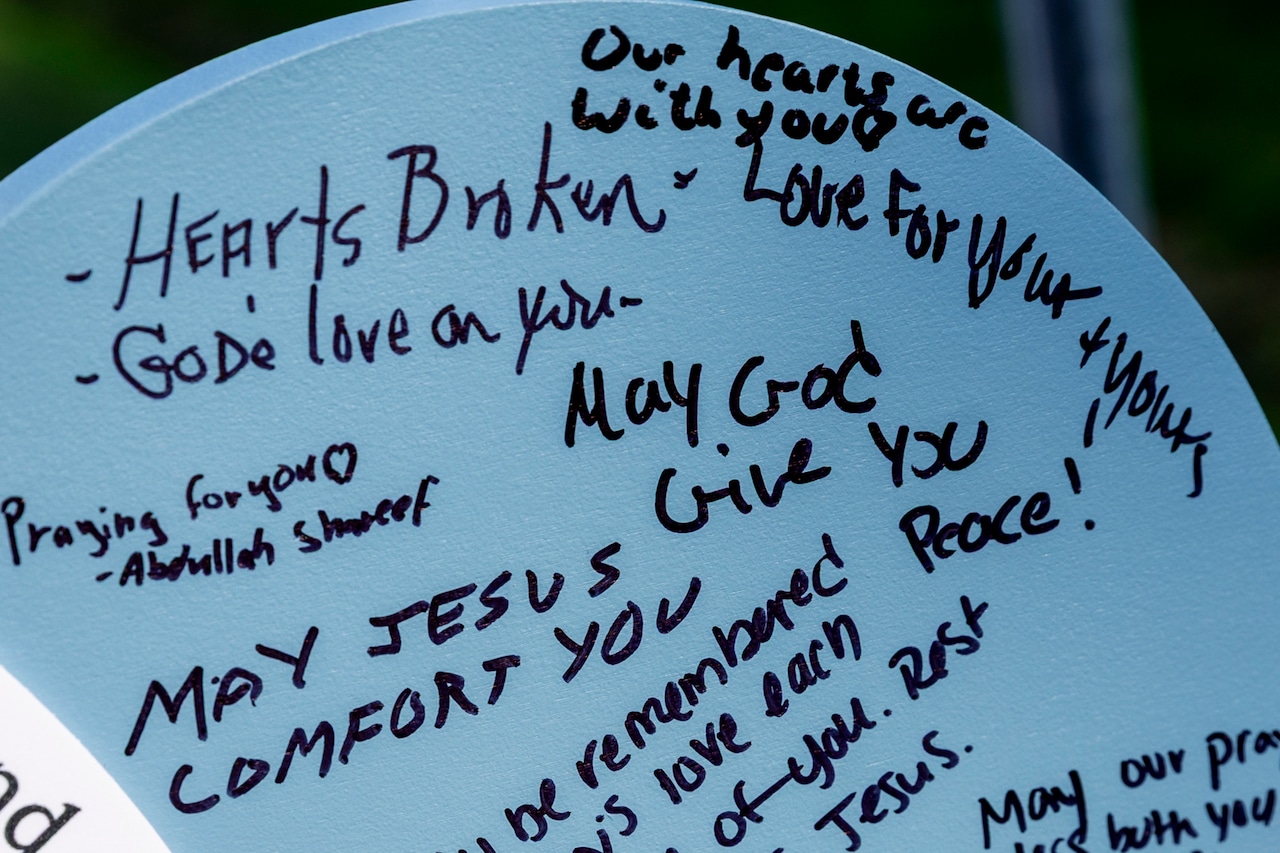 Our hearts are
with you♡
Love for You &
& Yours
- Hearts Broken -
- GoD's love on you -
May God
Give You
Peace!
Praying for you♡
- Abdullah Shareef
MAY JESUS
COMFORT YOU
be remembered
love each
of you. Rest
Jesus.
May our
both you